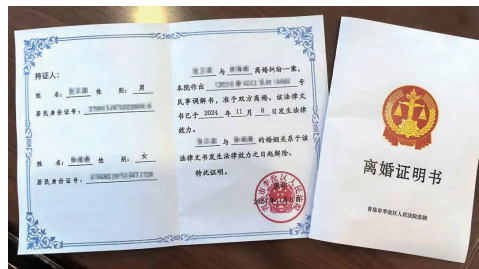 持证人：
姓 名： 性 别： 男
居民身份证号：
姓 名： 性 别： 女
居民身份证号：
与 离婚纠纷一案，
本院作出 号
民事调解书，准予双方离婚。该法律文
书已于 2024 年 11 月 8 日发生法律
效力。
与 的婚姻关系于该
法律文书发生法律效力之日起解除。
特此证明。
离婚证明书
青岛市李沧区人民法院监制